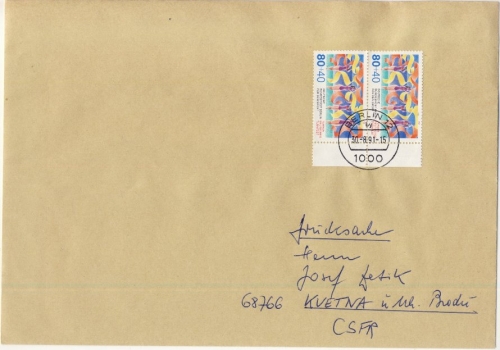 80+40 80+40
BERLIN 12
30.-8.91-15
1000
Drucksache
Herrn
Josef
68766 KVETNA u Uh. Brodu
CSFR